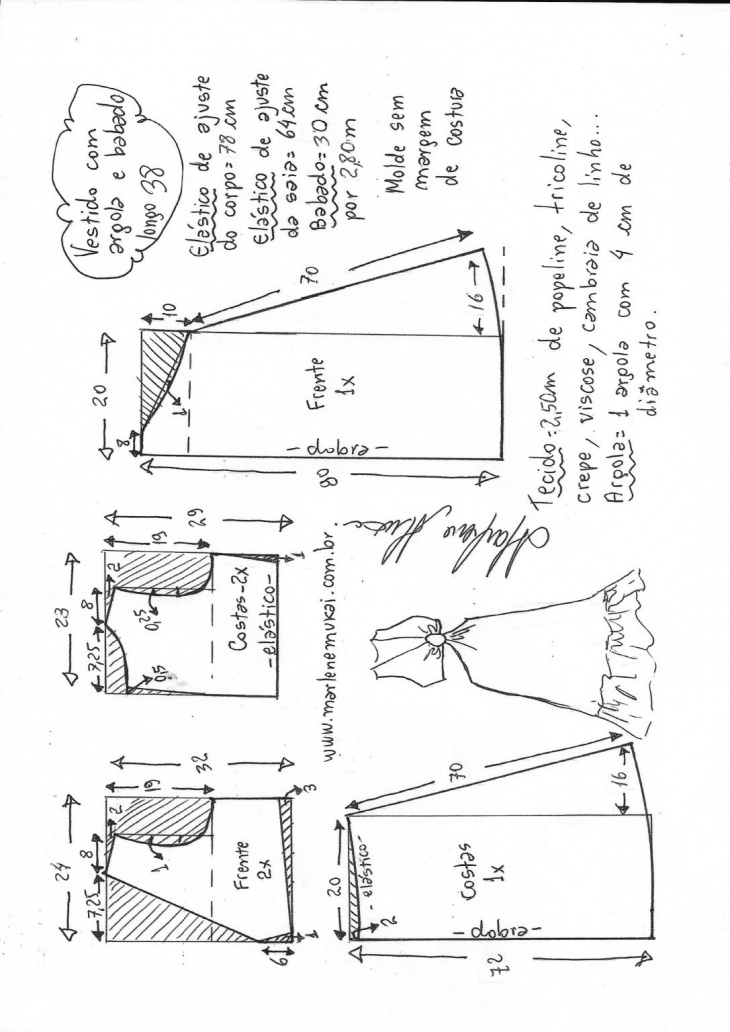 Vestido com
argola e babado
longo 38
Elástico de ajuste
do corpo = 78 cm
Elástico de ajuste
da saia = 64 cm
Babado = 30 cm
por 2,80m
Molde sem
margem
de costura
20
10
8
1
70
16
80
Frente
1x
- dobra -
Tecido = 2,50m de popeline, tricoline,
crepe, viscose, cambraia de linho...
Argola = 1 argola com 4 cm de
diâmetro.
23
7,25
8
2
19
29
0,25
0,5
1
Costas - 2x
- elástico -
www.marlenemukai.com.br.
24
7,25
8
2
19
32
1
6
1
3
Frente
2x
20
- elástico -
2
70
16
72
Costas
1x
- dobra -